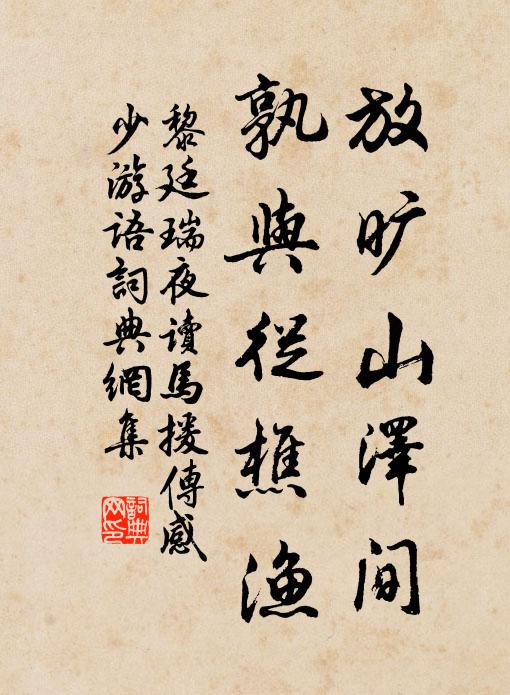 放旷山澤间
孰與從樵漁
黎廷瑞夜讀馬援傳感
少游語詞典網集
詞典网印